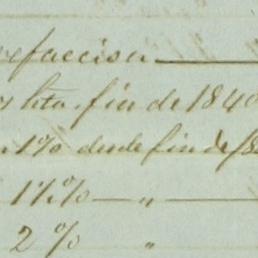 refaccion
hta. fin de 1840
1% desde fin de
1½% — " —
2% "